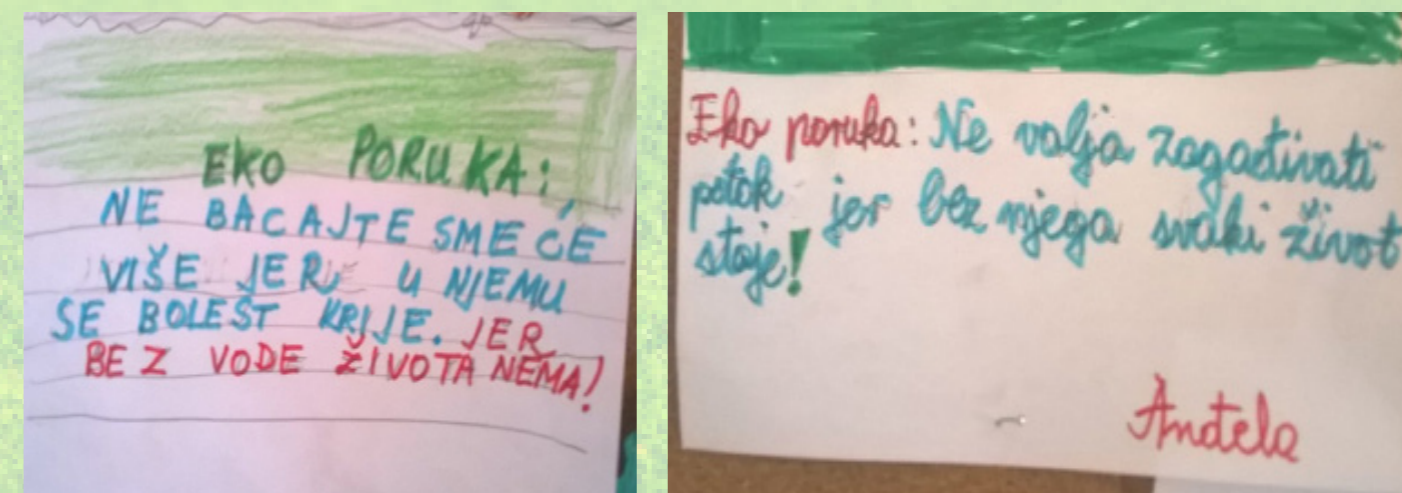 EKO PORUKA:
NE BACAJTE SMEĆE
VIŠE JER U NJEMU
SE BOLEST KRIJE. JER
BEZ VODE ŽIVOTA NEMA!
Eko poruka: Ne valja zagađivati
potok jer bez njega svaki život
staje!
Anđela